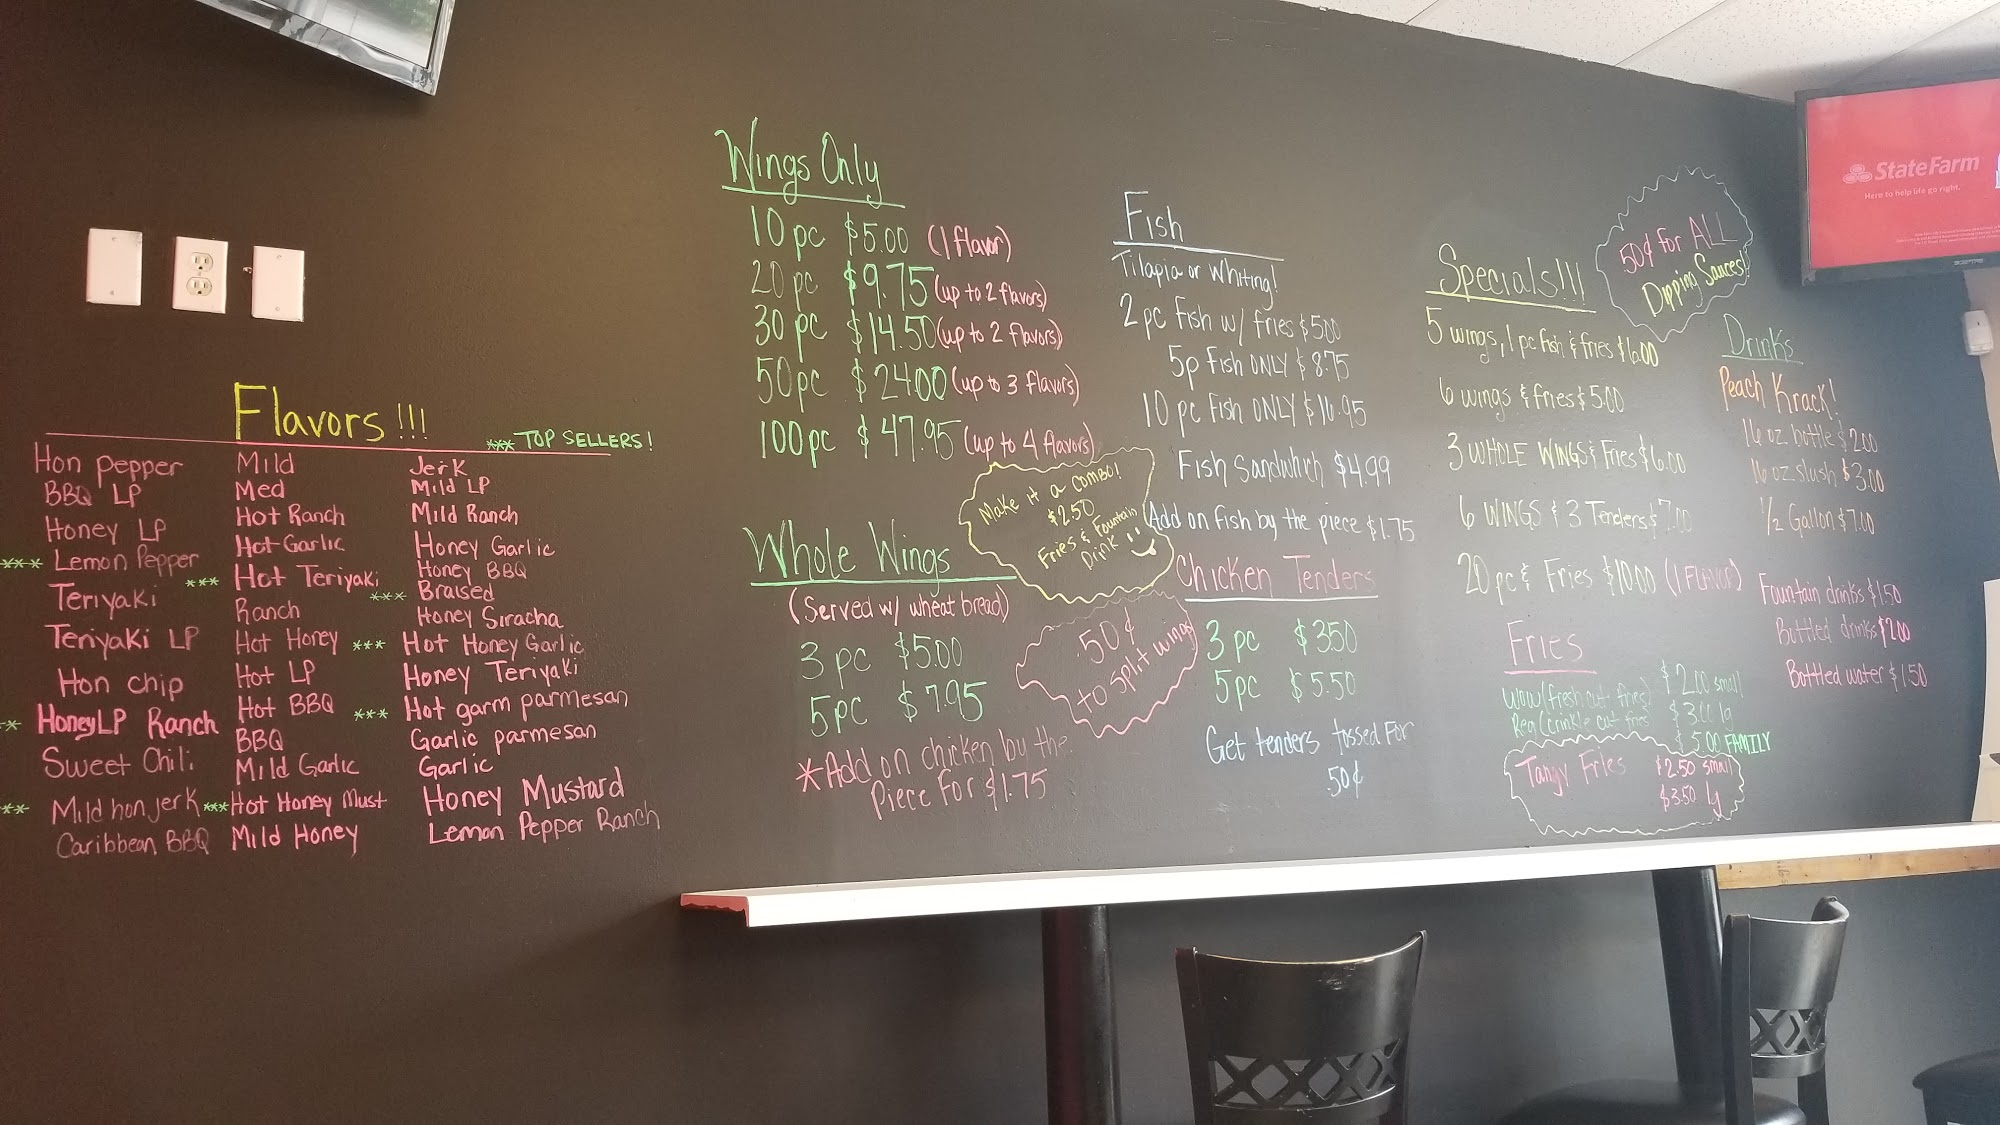 Flavors!!!
*** TOP SELLERS!
Hon pepper
BBQ LP
Honey LP
*** Lemon Pepper
Teriyaki
Teriyaki LP
Hon chip
* HoneyLP Ranch
Sweet Chili
** Mild hon jerk
Caribbean BBQ
Mild
Med
Hot Ranch
Hot Garlic
*** Hot Teriyaki
Ranch
Hot Honey
Hot LP
Hot BBQ
BBQ
Mild Garlic
*** Hot Honey Must
Mild Honey
Jerk
Mild LP
Mild Ranch
Honey Garlic
Honey BBQ
*** Braised
Honey Siracha
*** Hot Honey Garlic
Honey Teriyaki
*** Hot garm parmesan
Garlic parmesan
Garlic
Honey Mustard
Lemon Pepper Ranch
Wings Only
10 pc $5.00 (1 flavor)
20 pc $9.75 (up to 2 flavors)
30 pc $14.50 (up to 2 flavors)
50 pc $24.00 (up to 3 flavors)
100 pc $47.95 (up to 4 flavors)
Make it a combo!
$2.50
Fries & Fountain
Drink
Whole Wings
(Served w/ wheat bread)
3 pc $5.00
5 pc $7.95
*Add on chicken by the
Piece For $1.75
.50¢
to split wings
Fish
Tilapia or Whiting!
2 pc Fish w/ fries $5.00
5p Fish ONLY $8.75
10 pc Fish ONLY $16.95
Fish Sandwhich $4.99
Add on fish by the piece $1.75
Chicken Tenders
3 pc $3.50
5 pc $5.50
Get tenders tossed For
.50¢
Specials!!!
5 wings, 1 pc Fish & fries $6.00
6 wings & fries $5.00
3 WHOLE WINGS & Fries $6.00
6 WINGS & 3 Tenders $7.00
20 pc & Fries $10.00 (1 FLAVOR)
50¢ for ALL
Dipping Sauces!
Fries
Wow (fresh cut fries) $2.00 small
Reg (crinkle cut fries $3.00 lg
$5.00 FAMILY
Tangy Fries $2.50 small
$3.50 lg
Drinks
Peach Krack!
16 oz bottle $2.00
16 oz slush $3.00
1/2 Gallon $7.00
Fountain drinks $1.50
Bottled drinks $2.00
Bottled water $1.50
StateFarm
Here to help life go right.
SCEPTRE